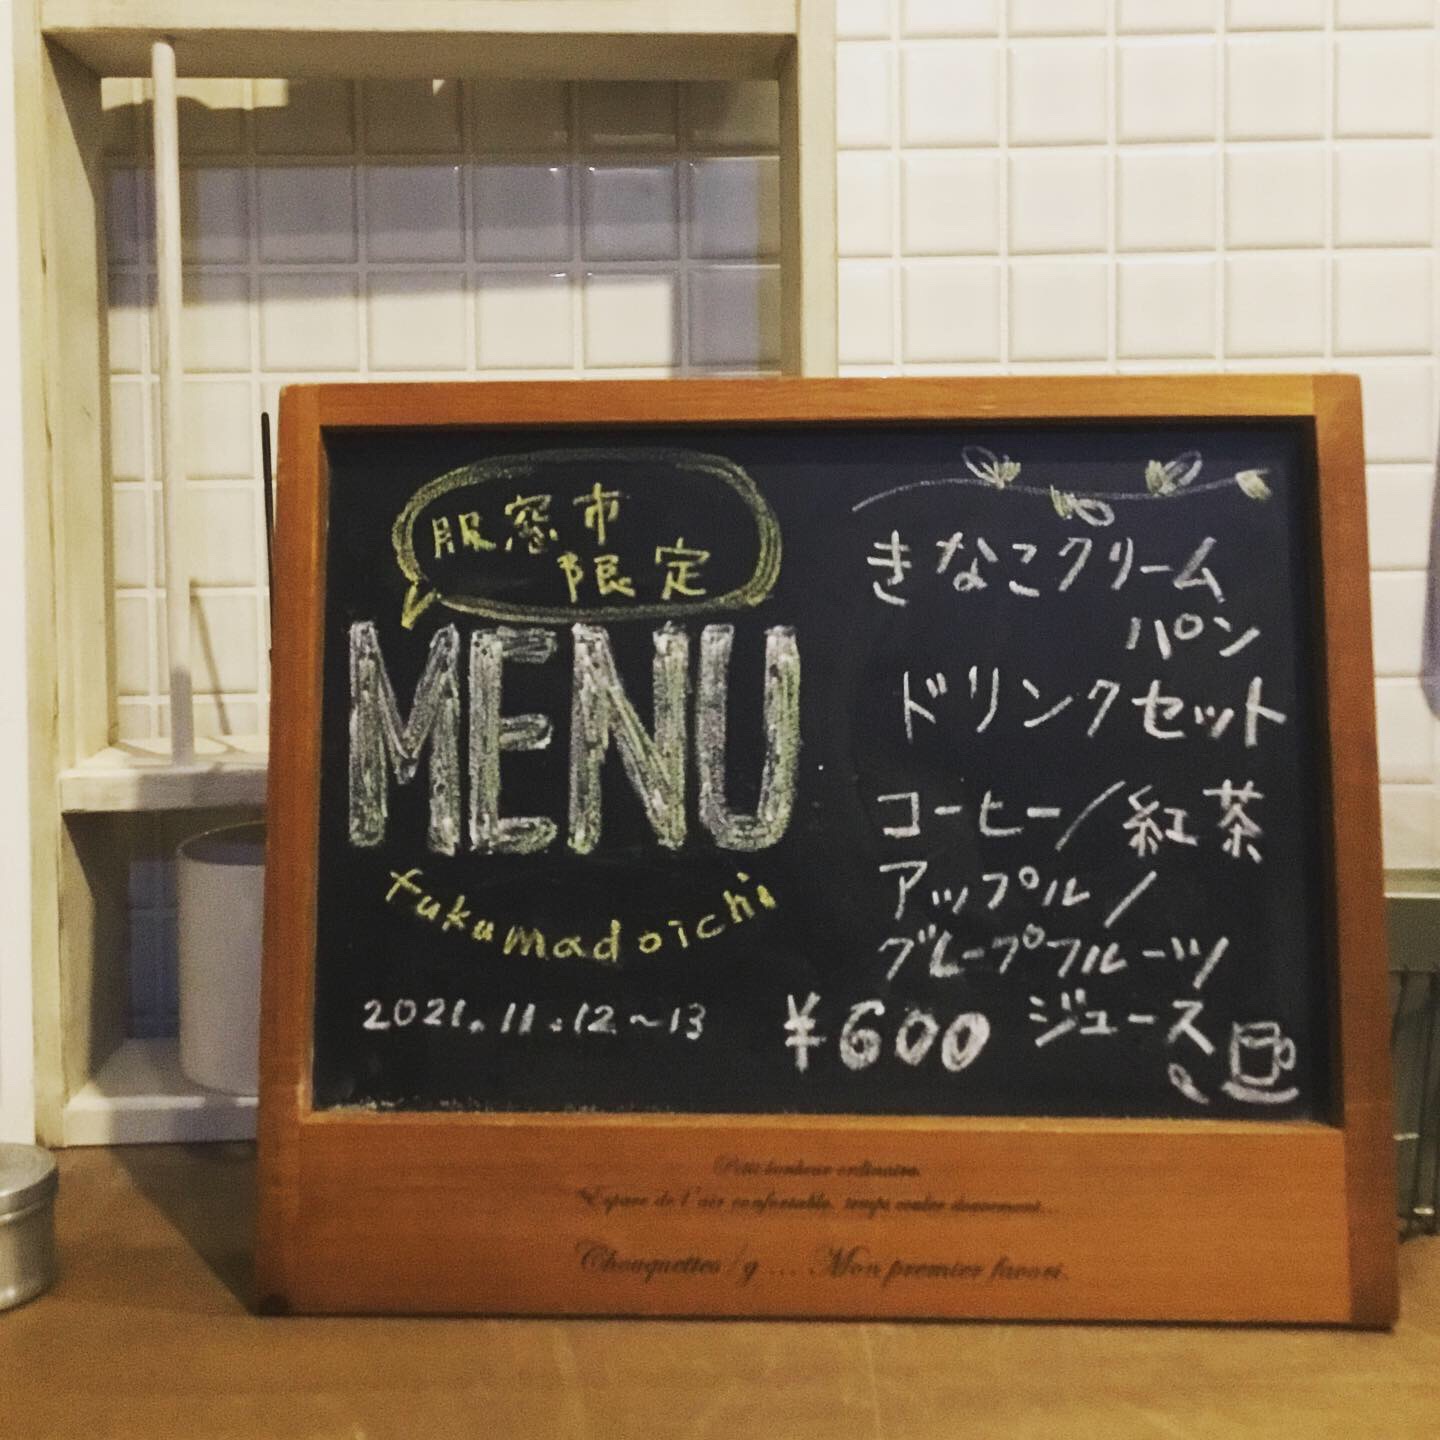 服窓市
限定
MENU
fukumadoichi
2021.11.12~13
きなこクリーム
パン
ドリンクセット
コーヒー/紅茶
アップル/
グレープフルーツ
ジュース
¥600
Petit bonheur ordinaire.
Espace de l'air confortable, temps couler doucement...
Chouquettes/g ... Mon premier favori.